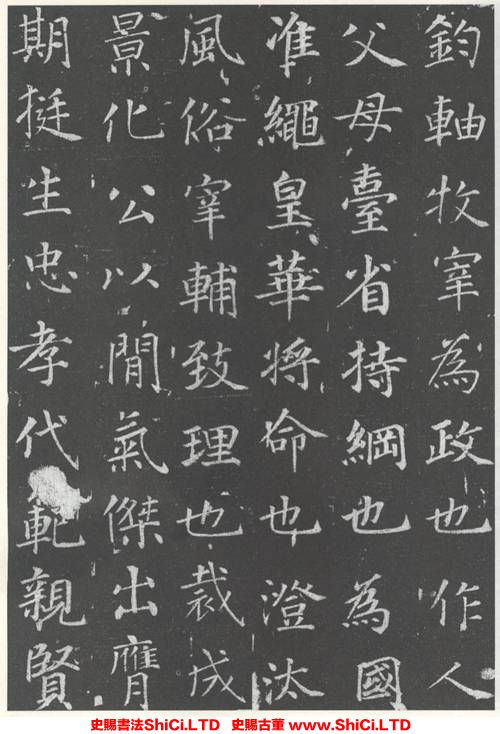 鈞軸牧宰為政也作人
父母臺省持綱也為國
准繩皇華將命也澄汰
風俗宰輔致理也裁成
景化公以閒氣傑出膺
期挺生忠孝代範親賢
史賜書法ShiCi.LTD 史賜古董 www.ShiCi.LTD